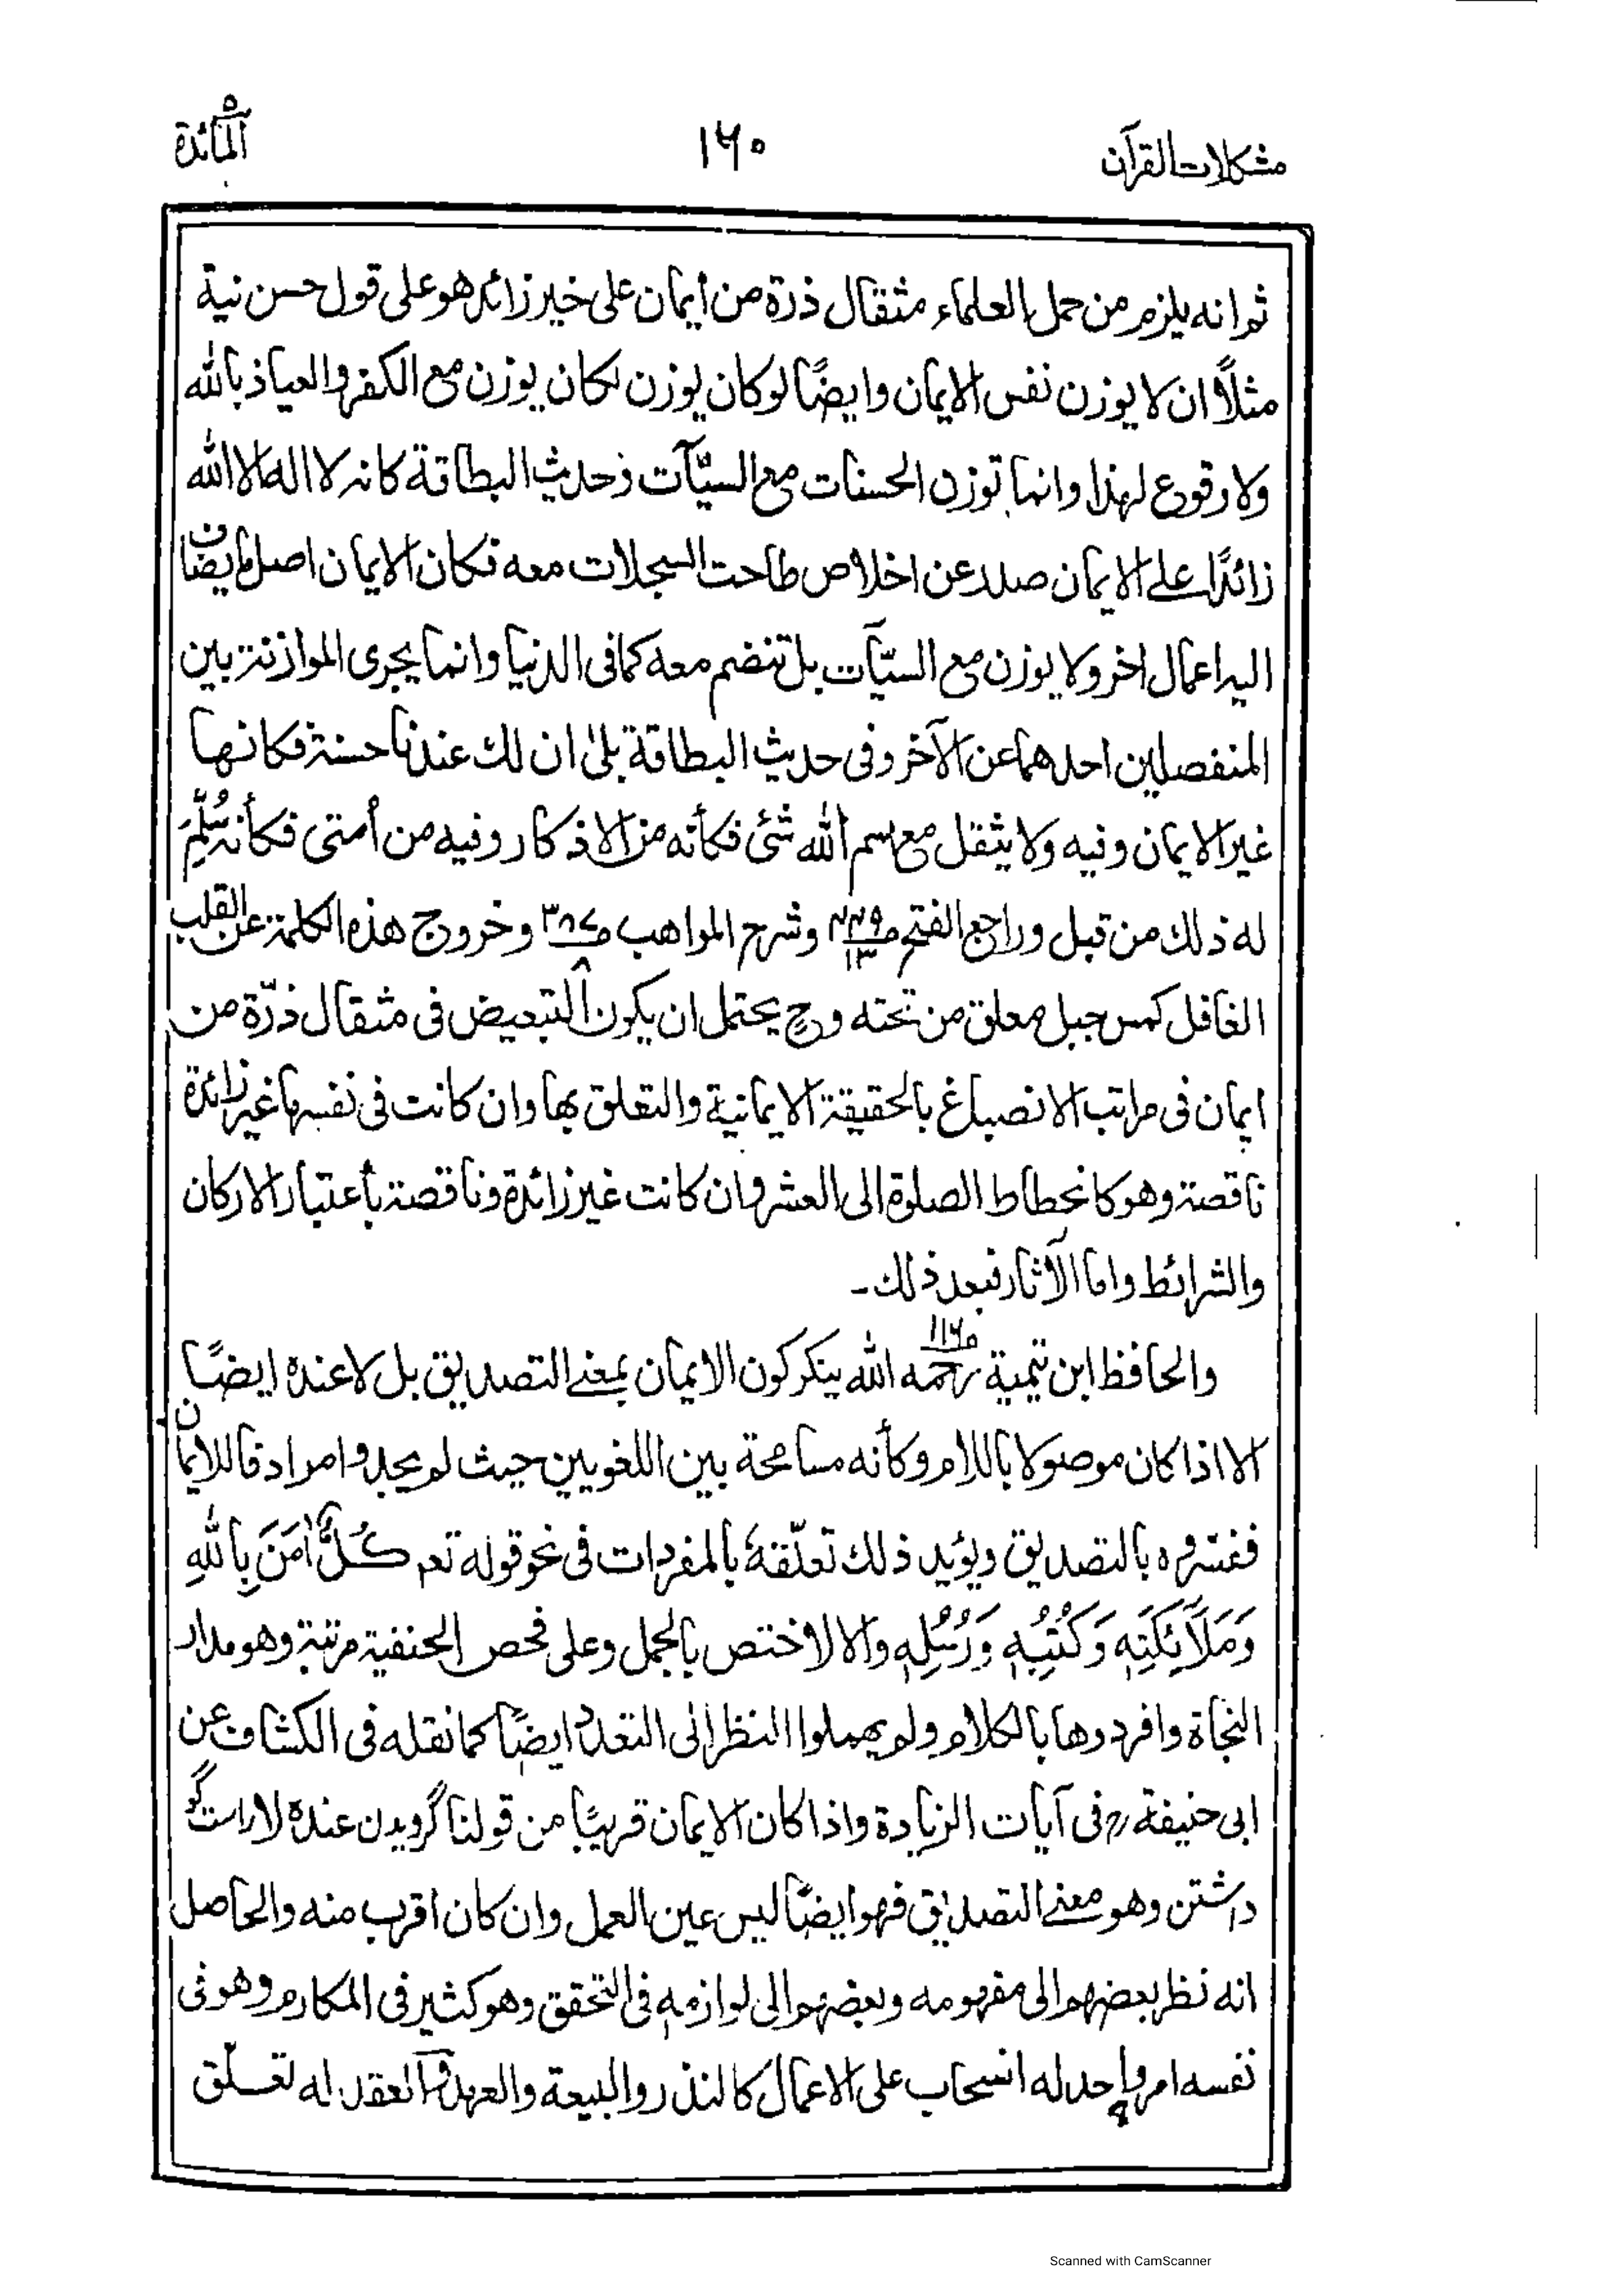 مشكلات القرآن
١٦٠
المائدة
ثم انه يلزم من حمل العلماء مثقال ذرة من ايمان على خير زائد هو على قول حسن نية
مثلاً ان لا يوزن نفس الايمان وايضًا لو كان يوزن لكان يوزن مع الكفر والعياذ بالله
ولا وقوع لهذا وانما توزن الحسنات مع السيّآت وحديث البطاقة كانه لا اله الا الله
زائدًا على الايمان صدر عن اخلاص طاحت السجلات معه فكان الايمان اصل ما يضاف
اليه اعمال اخر ولا يوزن مع السيّآت بل تنضم معه كما فى الدنيا وانما يجرى الموازنة بين
المنفصلين احدهما عن الآخر وفى حديث البطاقة بلىٰ ان لك عندنا حسنة فكانها
غير الايمان وفيه ولا يثقل مع اسم الله شئ فكأنه من الاذكار وفيه من أمتى فكأنه سُلِّمَ
له ذلك من قبل وراجع الفتح ص وشرح المواهب ص وخروج هذه الكلمة عن القلب
الغافل كمس جبل معلق من تحته وح يحتمل ان يكون التبعيض فى مثقال ذرّة من
ايمان فى مراتب الانصباغ بالحقيقة الايمانية والتعلق بها وان كانت فى نفسها غير زائدة
ناقصة وهو كانحطاط الصلوة الى العشر وان كانت غير زائدة وناقصة بأعتبار الاركان
والشرائط واما الآثار فبعد ذلك۔
والحافظ ابن تيمية رحمه الله ينكر كون الايمان بمعنى التصديق بل لا عنده ايضًا
الا اذا كان موصولا باللام وكأنه مسامحة بين اللغويين حيث لم يجدوا مرادفا للايمان
ففسّروه بالتصديق ويؤيد ذلك تعلّقه بالمفردات فى نحو قوله تعم كُلٌّ اٰمَنَ بِاللّٰهِ
وَمَلَآئِكَتِهٖ وَكُتُبِهٖ وَرُسُلِهٖ والا لاختص بالجمل وعلى فحص الحنفية مرتبة وهو مدار
النجاة وافردوها بالكلام ولم يهملوا النظر الى التعدد ايضًا كما نقله فى الكشاف عن
ابى حنيفة رح فى آيات الزيادة واذا كان الايمان قريبًا من قولنا گرويدن عنده لا راست گو
داشتن وهو معنى التصديق فهو ايضًا ليس عين العمل وان كان اقرب منه والحاصل
انه نظر بعضهم الى مفهومه وبعضهم الى لوازمه فى التحقق وهو كثير فى المكارم وهو فى
نفسه امر واحد له انسحاب على الاعمال كالنذر والبيعة والعهد والعقد له تعلّق
Scanned with CamScanner